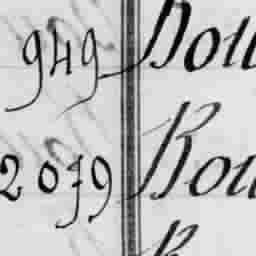 949 Bou
2079 Bou